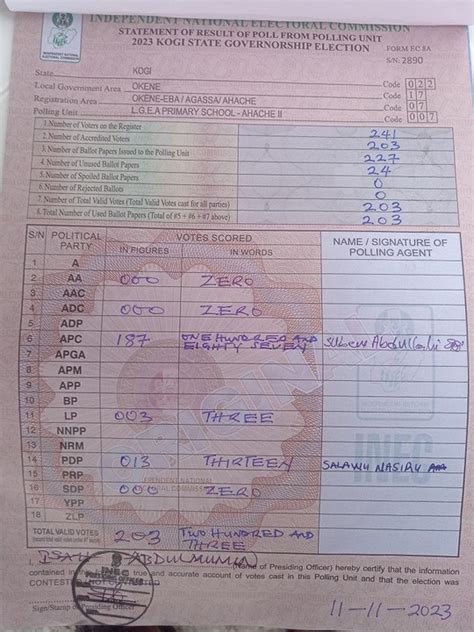 INDEPENDENT NATIONAL ELECTORAL COMMISSION
STATEMENT OF RESULT OF POLL FROM POLLING UNIT
2023 KOGI STATE GOVERNORSHIP ELECTION
FORM EC 8A
S/N: 2890
State KOGI Code 022
Local Government Area OKENE Code 17
Registration Area OKENE-EBA / AGASSA/ AHACHE Code 07
Polling Unit L.G.E.A PRIMARY SCHOOL - AHACHE II Code 007
1. Number of Voters on the Register 241
2. Number of Accredited Voters 203
3. Number of Ballot Papers Issued to the Polling Unit 227
4. Number of Unused Ballot Papers 24
5. Number of Spoiled Ballot Papers 0
6. Number of Rejected Ballots 0
7. Number of Total Valid Votes (Total Valid Votes cast for all parties) 203
8. Total Number of Used Ballot Papers (Total of #5 + #6 + #7 above) 203
S/N POLITICAL PARTY VOTES SCORED NAME / SIGNATURE OF POLLING AGENT
IN FIGURES IN WORDS
1 A
2 AA 000 ZERO
3 AAC
4 ADC 000 ZERO
5 ADP
6 APC 187 ONE HUNDRED AND EIGHTY SEVEN
7 APGA
8 APM
9 APP
10 BP
11 LP 003 THREE
12 NNPP
13 NRM
14 PDP 013 THIRTEEN SALAWU NASIRU
15 PRP
16 SDP 000 ZERO
17 YPP
18 ZLP
TOTAL VALID VOTES 203 TWO HUNDRED AND THREE
I, ISAH ABDULMUMIN (Name of Presiding Officer) hereby certify that the information
contained in this true and accurate account of votes cast in this Polling Unit and that the election was
CONTESTED
INEC
PRESIDING OFFICER
Sign/Stamp of Presiding Officer
11-11-2023